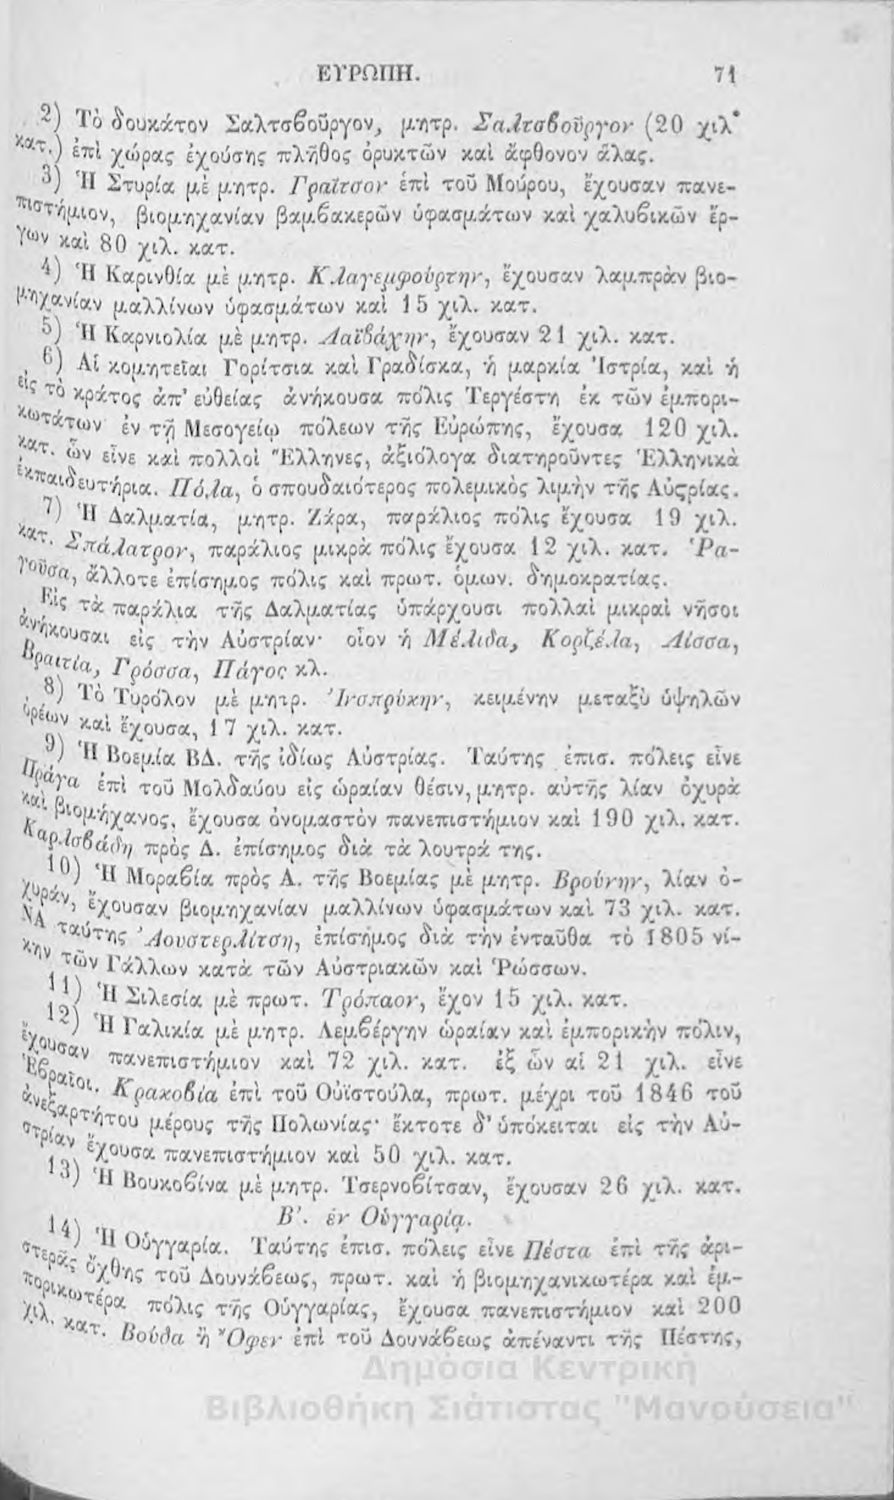 ΕΥΡΩΠΗ. 71
2) Τὸ δουκάτον Σαλτσϐοῦργον, μητρ. Σαλτσϐοῦργον (20 χιλ.
κατ.) ἐπὶ χώρας ἐχούσης πλῆθος ὀρυκτῶν καὶ ἄφθονον ἅλας.
3) Ἡ Στυρία μὲ μητρ. Γραῖτσον ἐπὶ τοῦ Μούρου, ἔχουσαν πανε-
πιστήμιον, βιομηχανίαν βαμϐακερῶν ὑφασμάτων καὶ χαλυϐικῶν ἔρ-
γων καὶ 80 χιλ. κατ.
4) Ἡ Καρινθία μὲ μητρ. Κλαγεμφούρτην, ἔχουσαν λαμπρὰν βιο-
μηχανίαν μαλλίνων ὑφασμάτων καὶ 15 χιλ. κατ.
5) Ἡ Καρνιολία μὲ μητρ. Λαϊϐάχην, ἔχουσαν 21 χιλ. κατ.
6) Αἱ κομητεῖαι Γορίτσια καὶ Γραδίσκα, ἡ μαρκία Ἰστρία, καὶ ἡ
εἰς τὸ κράτος ἀπ' εὐθείας ἀνήκουσα πόλις Τεργέστη ἐκ τῶν ἐμπορι-
κωτάτων ἐν τῇ Μεσογείῳ πόλεων τῆς Εὐρώπης, ἔχουσα 120 χιλ.
κατ. ὧν εἶνε καὶ πολλοὶ Ἕλληνες, ἀξιόλογα διατηροῦντες Ἑλληνικὰ
ἐκπαιδευτήρια. Πόλα, ὁ σπουδαιότερος πολεμικὸς λιμὴν τῆς Αὐϛρίας.
7) Ἡ Δαλματία, μητρ. Ζάρα, παράλιος πόλις ἔχουσα 19 χιλ.
κατ. Σπάλατρον, παράλιος μικρὰ πόλις ἔχουσα 12 χιλ. κατ. Ῥα-
γοῦσα, ἄλλοτε ἐπίσημος πόλις καὶ πρωτ. ὁμων. δημοκρατίας.
Εἰς τὰ παράλια τῆς Δαλματίας ὑπάρχουσι πολλαὶ μικραὶ νῆσοι
ἀνήκουσαι εἰς τὴν Αὐστρίαν· οἷον ἡ Μέλιδα, Κορζέλα, Λίσσα,
Βραιτία, Γρόσσα, Πάγος κλ.
8) Τὸ Τυρόλον μὲ μητρ. Ἰνσπρύκην, κειμένην μεταξὺ ὑψηλῶν
ὀρέων καὶ ἔχουσα, 17 χιλ. κατ.
9) Ἡ Βοεμία ΒΔ. τῆς ἰδίως Αὐστρίας. Ταύτης ἐπισ. πόλεις εἶνε
Πράγα ἐπὶ τοῦ Μολδαύου εἰς ὡραίαν θέσιν, μητρ. αὐτῆς λίαν ὀχυρὰ
καὶ βιομήχανος, ἔχουσα ὀνομαστὸν πανεπιστήμιον καὶ 190 χιλ. κατ.
Καρλσϐάδη πρὸς Δ. ἐπίσημος διὰ τὰ λουτρά της.
10) Ἡ Μοραϐία πρὸς Α. τῆς Βοεμίας μὲ μητρ. Βρούνην, λίαν ὀ-
χυράν, ἔχουσαν βιομηχανίαν μαλλίνων ὑφασμάτων καὶ 73 χιλ. κατ.
ΝΑ ταύτης Ἀουστερλίτση, ἐπίσημος διὰ τὴν ἐνταῦθα τὸ 1805 νί-
κην τῶν Γάλλων κατὰ τῶν Αὐστριακῶν καὶ Ῥώσσων.
11) Ἡ Σιλεσία μὲ πρωτ. Τρόπαον, ἔχον 15 χιλ. κατ.
12) Ἡ Γαλικία μὲ μητρ. Λεμϐέργην ὡραίαν καὶ ἐμπορικὴν πόλιν,
ἔχουσαν πανεπιστήμιον καὶ 72 χιλ. κατ. ἐξ ὧν αἱ 21 χιλ. εἶνε
Ἑϐραῖοι. Κρακοϐία ἐπὶ τοῦ Οὐϊστούλα, πρωτ. μέχρι τοῦ 1846 τοῦ
ἀνεξαρτήτου μέρους τῆς Πολωνίας· ἔκτοτε δ' ὑπόκειται εἰς τὴν Αὐ-
στρίαν ἔχουσα πανεπιστήμιον καὶ 50 χιλ. κατ.
13) Ἡ Βουκοϐίνα μὲ μητρ. Τσερνοϐίτσαν, ἔχουσαν 26 χιλ. κατ.
Β'. ἐν Οὑγγαρίᾳ.
14) Ἡ Οὑγγαρία. Ταύτης ἐπισ. πόλεις εἶνε Πέστα ἐπὶ τῆς ἀρι-
στερᾶς ὄχθης τοῦ Δουνάϐεως, πρωτ. καὶ ἡ βιομηχανικωτέρα καὶ ἐμ-
πορικωτέρα πόλις τῆς Οὑγγαρίας, ἔχουσα πανεπιστήμιον καὶ 200
χιλ. κατ. Βούδα ἢ Ὄφεν ἐπὶ τοῦ Δουνάϐεως ἀπέναντι τῆς Πέστης,
Δημόσια Κεντρική
Βιβλιοθήκη Σιάτιστας "Μανούσεια"